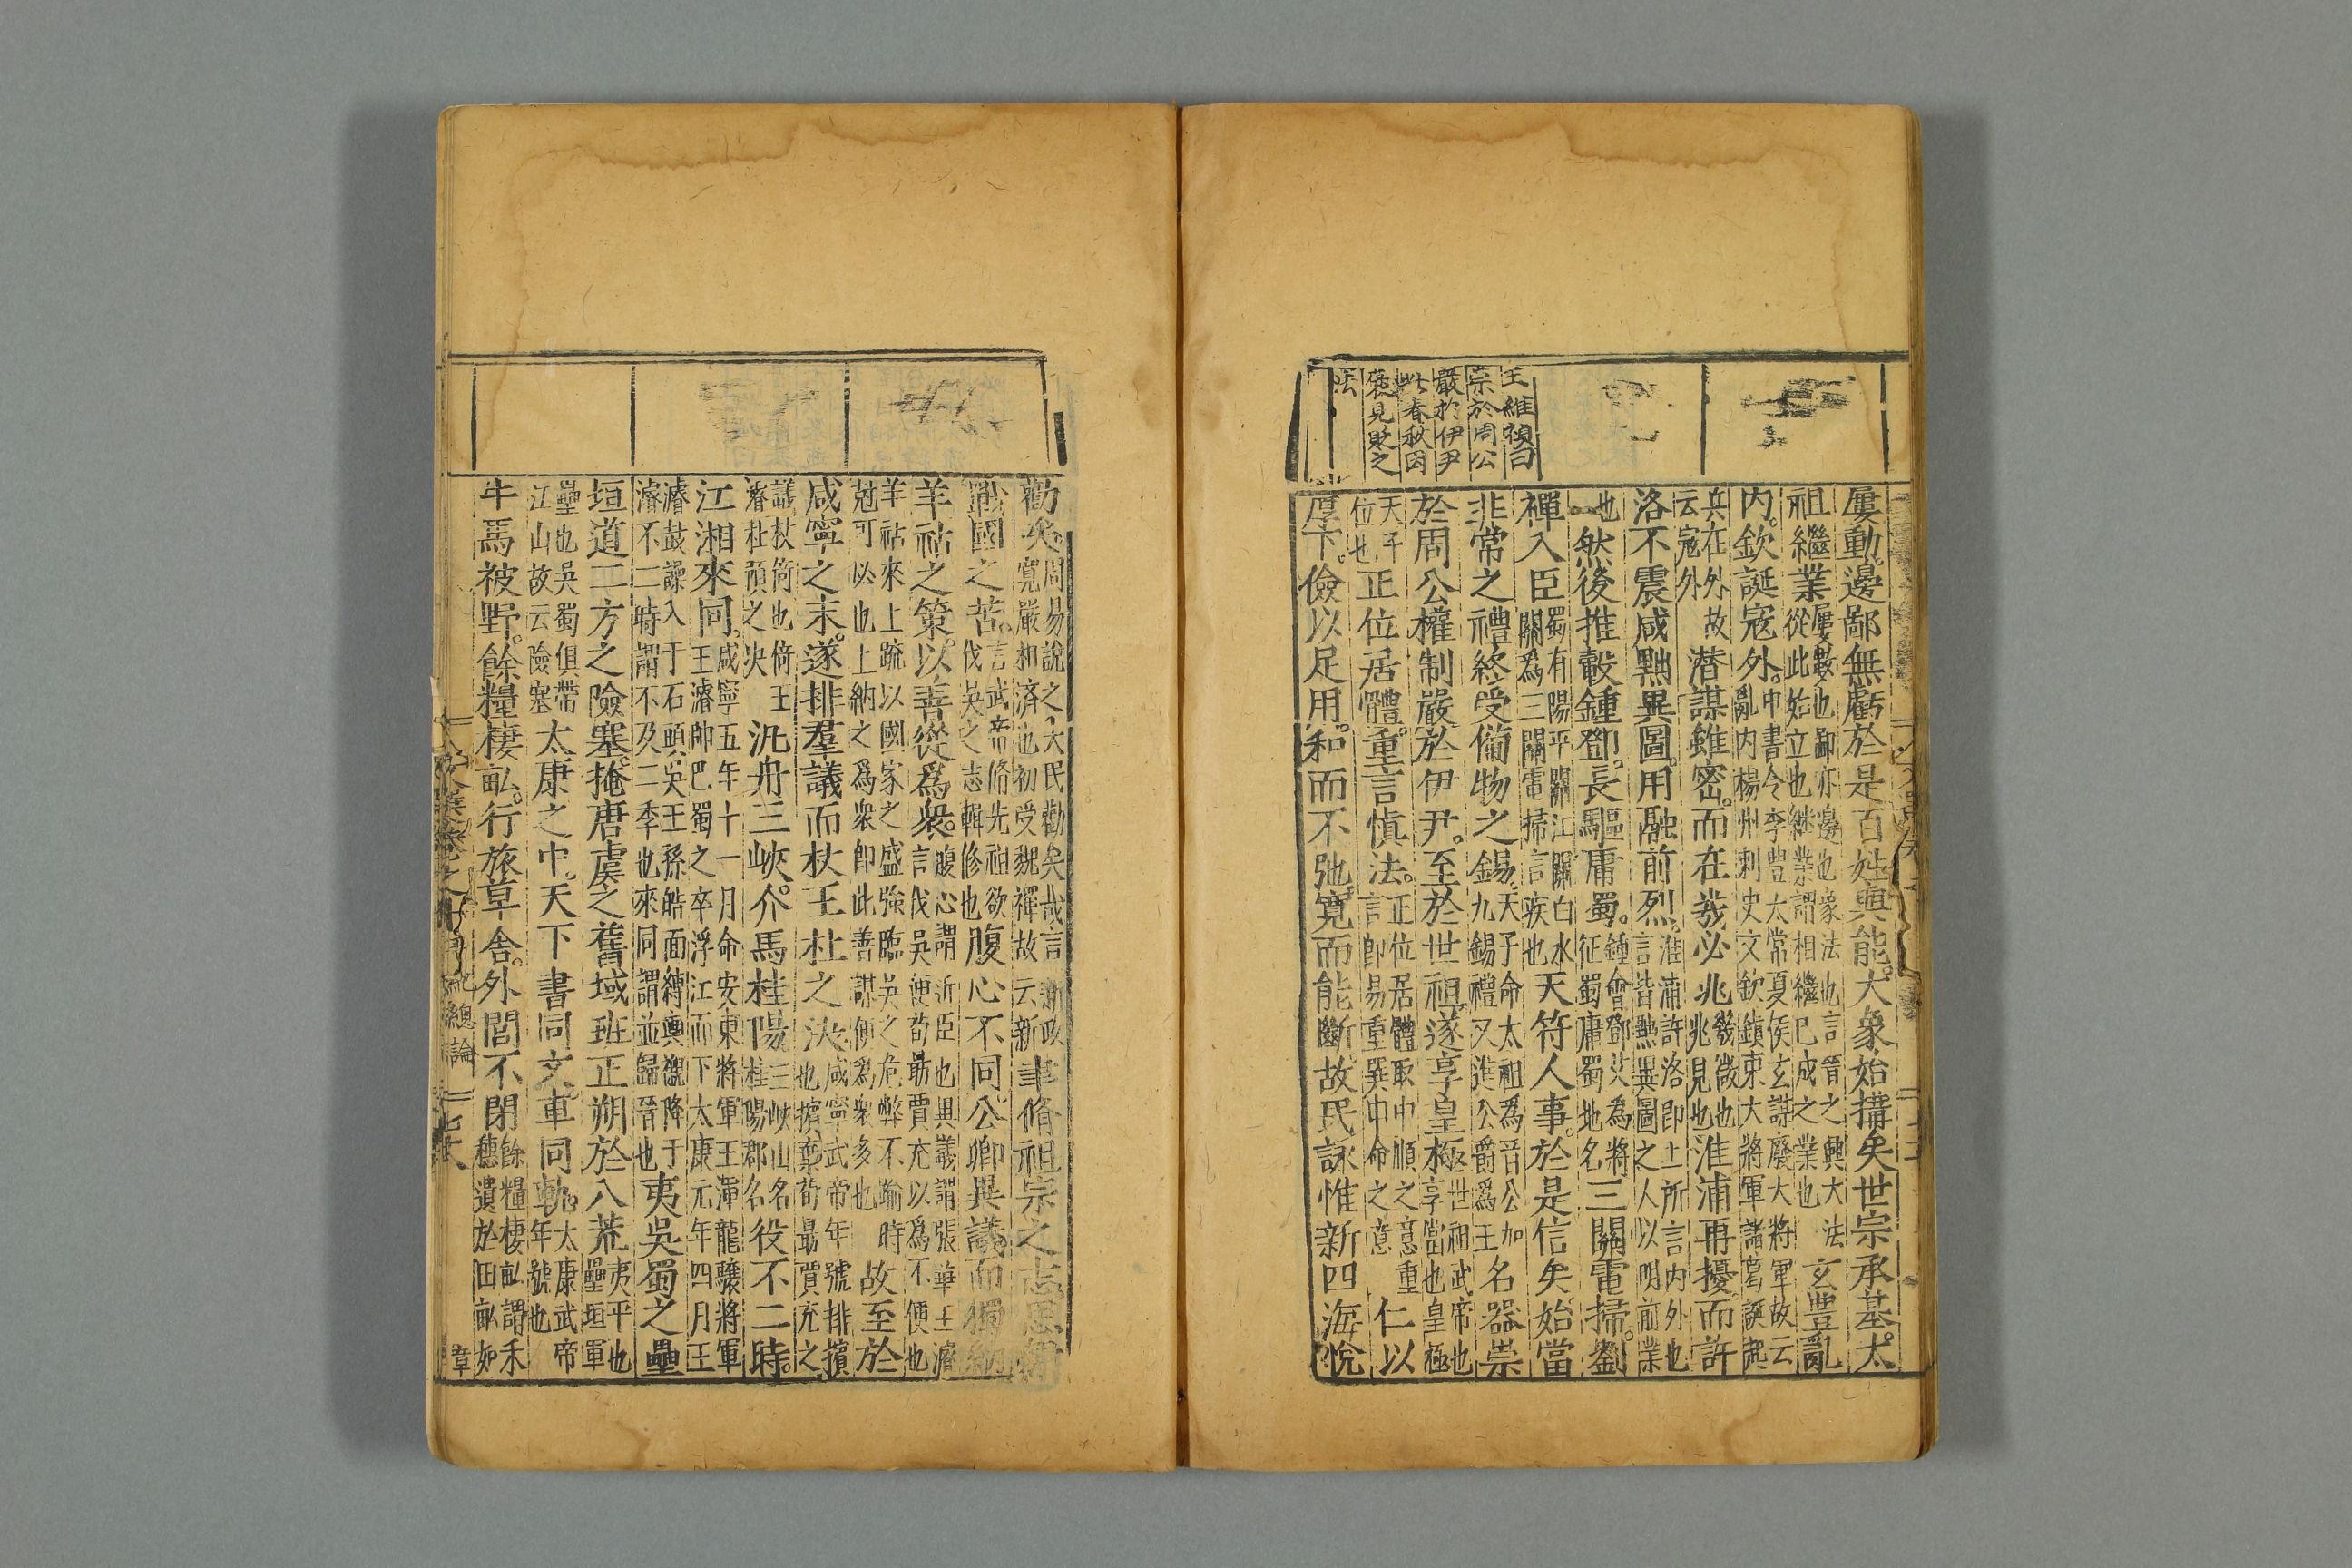 王維禎曰
崇於周公
嚴於伊尹
此春秋因
褒見貶之
法
屢動邊鄙無虧於是百姓與能大象始搆矣世宗承基太
祖繼業屢數也鄙亦邊也象法也言晉之興大法從此始立也継業謂相繼已成之業也玄豊亂
内欽誕寇外中書令李豊太常夏侯玄謀廢大將軍故云亂内楊州刺史文欽鎮東大將軍諸葛誕起
兵在外故云寇外潜謀雖密而在幾必兆幾微也兆見也淮浦再擾而許
洛不震咸黜異圖用融前烈淮浦許洛即上所言内外也言皆黜異圖之人以明前業
也然後推轂鍾鄧長驅庸蜀鍾會鄧艾為將征蜀庸蜀地名三關電掃劉
禪入臣蜀有陽平關江關白水關為三關電掃言疾也天符人事於是信矣始當
非常之禮終受備物之錫天子命太祖為晉公加九錫禮又進公爵為王名器崇
於周公權制嚴於伊尹至於世祖遂享皇極世祖武帝也享當也皇極
天子位也正位居體重言慎法正位居體取中順之意重言即易重巽申命之意仁以
厚下儉以足用和而不弛寛而能斷故民詠惟新四海悅
勸矣周易說之大民勸矣哉言寬嚴相濟也初受魏禪故云新政新聿脩祖宗之志思輯
戰國之苦言武帝脩先祖欲伐吳之志輯修也腹心不同公卿異議而獨納
羊祜之策以善從爲衆腹心謂近臣也異議謂張華王濬言伐吳便荀勗賈充以為不便也
羊祜來上疏以國家之盛強臨吳之危弊不踰時尅可必也上納之爲衆即此善謀便為衆多也故至於
咸寧之末遂排羣議而杖王杜之決咸寧武帝年號排擯也擯棄荀勗賈充之
議杖倚也倚王濬杜預之決汎舟三峽介馬桂陽三峽山名桂陽郡名役不二時
江湘來同咸寧五年十一月命安東將軍王渾龍驤將軍王濬帥巴蜀之卒浮江而下太康元年四月王
濬鼓譟入于石頭吳王孫皓面縛輿櫬降于濬不二時謂不及二季也來同謂並歸晉也夷吳蜀之壘
垣道二方之險塞掩唐虞之舊域班正朔於八荒夷平也壘垣軍
壘也吳蜀俱帶江山故云險塞太康之中天下書同文車同軌太康武帝年號也
牛馬被野餘糧棲畝行旅草舍外閭不閉餘糧棲畝謂禾穗遺於田畝如
總論
章